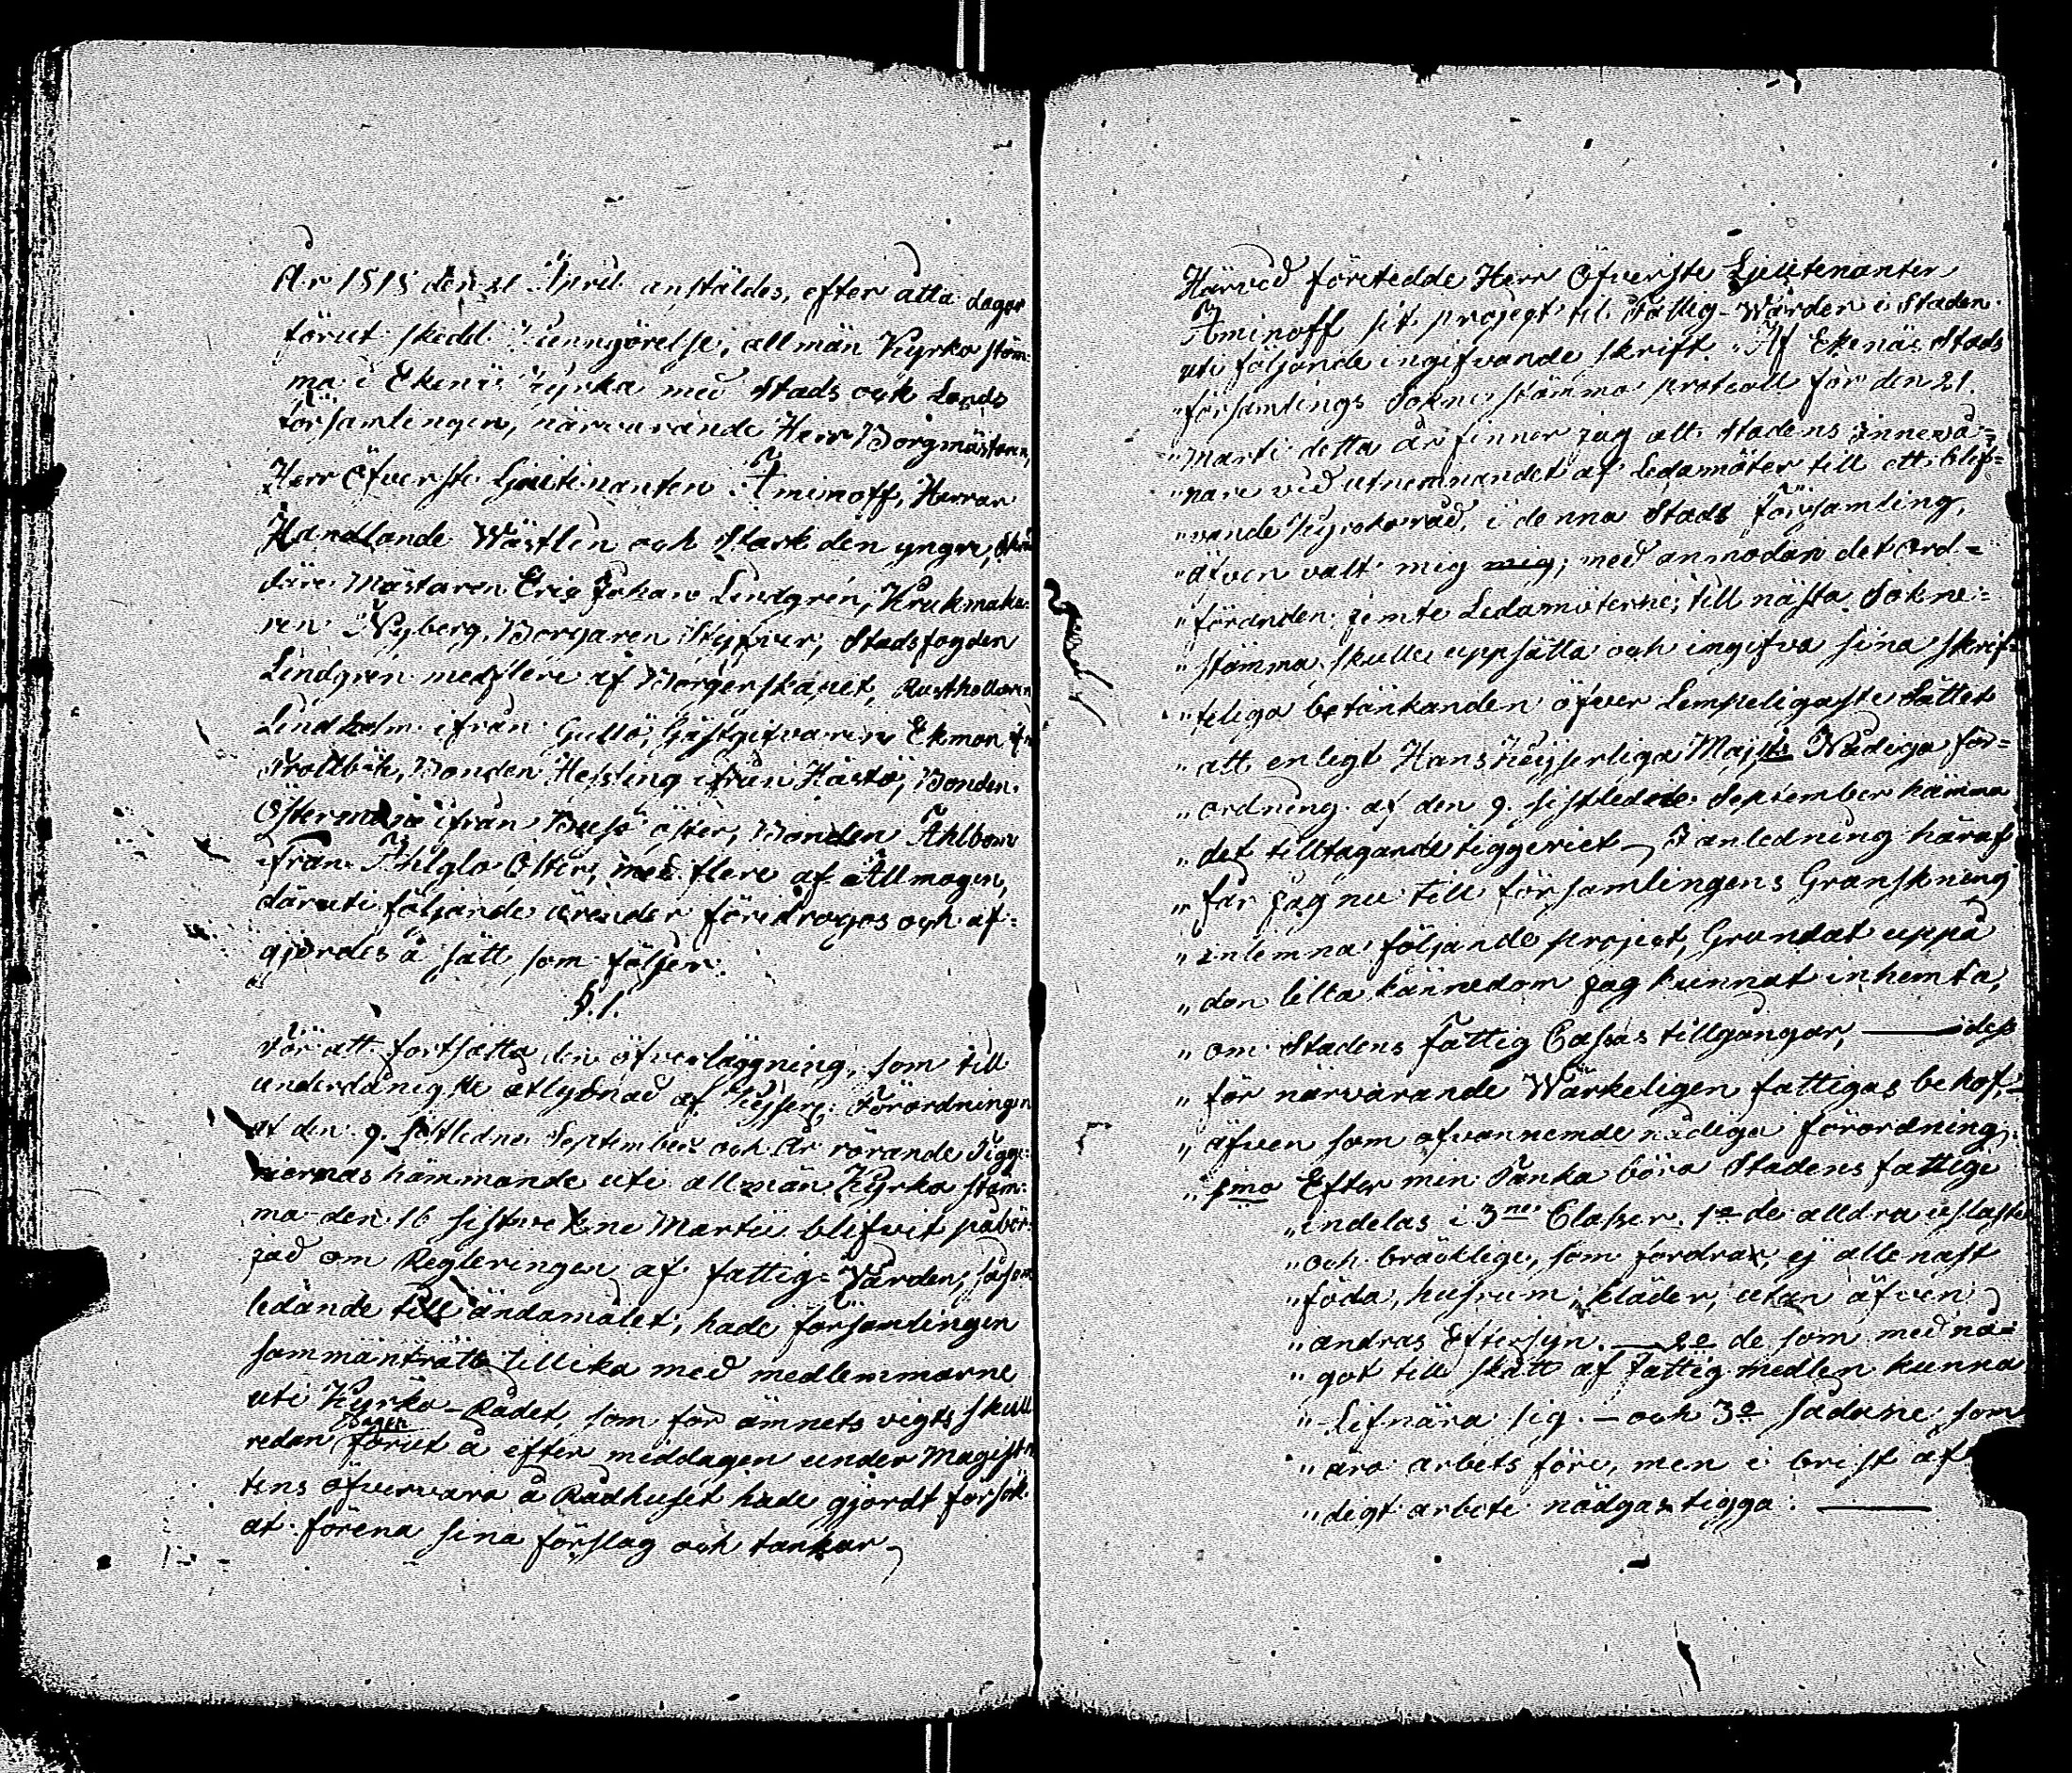 År 1818 den 21 April anstäldes, efter åtta dagar
förut skedd kunngörelse, allmän Kyrko stäm-
ma i Ekenäs Kyrka med Stads och Lands
församlingen, närvarande Herr Borgmästaren,
Herr Öfverste Ljeutenanten Aminoff, Herrar
Handlande Wästlin och Stark den yngre,
Mästaren Eric Johan Lindgrén, Krukmaka-
ren Nyberg, Borgaren Styfver, Stadsfogden
Lindgrén med flere af Borgerskapet, Rusthollaren
Lindholm ifrån Gullö, Gästgifvaren Ekman
Trollböle, Bonden Hesling ifrån Hästö, Bonden
Österman ifrån Busö öster, Bonden Ahlbom
ifrån Öster, med flere af Allmogen,
däruti följande ärender föredrogos och af-
gjordes å sätt som följer.
§.1.
För att fortsätta den öfverläggning, som till
underdånigste åtlydnad af Keyserl: Förordningen
af den 9. sistledne September och År rörande Tigge-
riernas hämmande uti allmän Kyrko stäm-
ma den 16 sistvekne Martii blifvit påbör-
jad om Regleringen af fattig-Vården, såsom
ledande till ändamålet, hade församlingen
sammanträtt tillika med medlemmarne
uti Kyrko-Rådet, som för ämnets vigts skull
redan dagen förut å efter middagen under Magistra
tens öfvervaro å Rådhuset hade gjordt försök
at förena sina förslag och tankar
Härvid företedde Herr Öfverste Ljeutenanten
Aminoff sit project til Fattig-Wården i Staden
uti följande ingifvande skrift. "Af Ekenäs Stads
"församlings Sokne stämmo protcoll för den 21.
"Martii detta år finner jag att Stadens Innevå-
"nare vid utnemnandet af Ledamöter till ett blif-
"vande Kyrckoråd, i denna Stads Församling,
"äfven valt mig mig; med anmodan det Ord-
"föranden jemte Ledamöterne; till nästa Sokne-
"stämma skulle uppsätta och ingifva sina skrif-
"teliga betänkanden öfver Lempeligaste Sättet
"att enligt Hans Keyserliga Maj:ts Nådiga för-
"ordning af den 9. sistledne September hämma
"det tilltagande tiggeriet I anledning häraf
"får jag nu till församlingens Granskning
"inlemna följande project, Grundat uppå
"den lilla kännedom jag kunnat inhemta,
"om Stadens Fattig Cassas tillgångar, — dess
"för närvarande Wärkeligen fattigas behof,
"äfven som ofvannemde nådiga förordning.
"1mo Efter min Tanka böra Stadens fattige
"indelas i 3ne Classer. 1o de alldra uslaste
"och bräcklige, som fordrar, ej allenast
"föda, husrum, kläder, utan äfven
"andras Eftersyn. — 2o de som med nå-
"got till skått af Fattig medlen kunna
"Lifnära sig. — och 3o sådane som
"äro arbets före, men i brist af
"digt arbete nödgas tigga. —